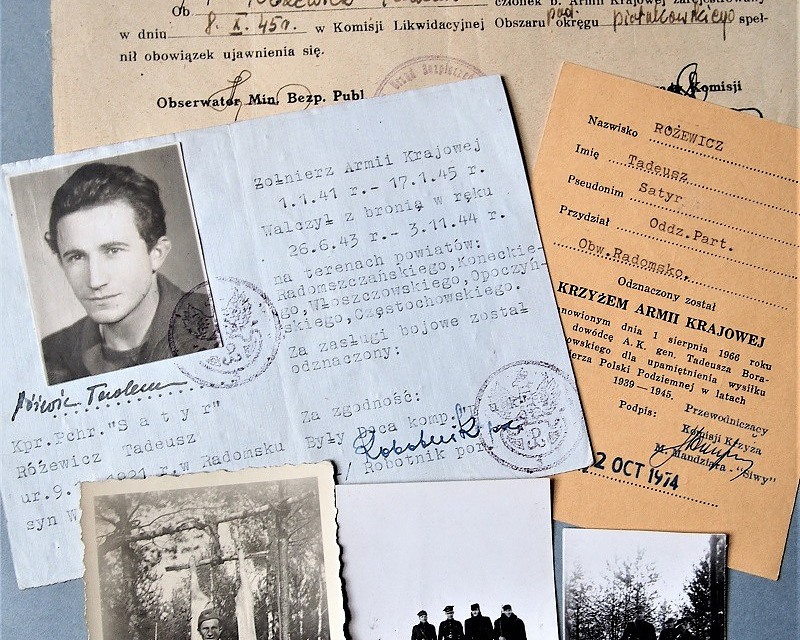 Ob członek b. Armii Krajowej zarejestrowany
w dniu 8. X. 45r. w Komisji Likwidacyjnej Obszaru pod. okręgu piotrkowskiego speł-
nił obowiązek ujawnienia się.
Obserwator Min. Bezp. Publ. Komisji
Żołnierz Armii Krajowej
1.1.41 r.- 17.1.45 r.
Walczył z bronią w ręku
26.6.43 r.- 3.11.44 r.
na terenach powiatów:
Radomszczańskiego,Koneckie-
go,Włoszczowskiego,Opoczyń-
skiego,Częstochowskiego.
Za zasługi bojowe został
odznaczony:
Za zgodność:
Były Dca komp.
/ Robotnik por.
Kpr.Pchr."S a t y r"
Różewicz Tadeusz
ur.9. 1921 r.w Radomsku
syn W
Nazwisko RÓŻEWICZ
Imię Tadeusz
Pseudonim Satyr
Przydział Oddz.Part.
Obw.Radomsko,
Odznaczony został
KRZYŻEM ARMII KRAJOWEJ
nowionym dnia 1 sierpnia 1966 roku
dowódcę A.K. gen. Tadeusza Bora-
owskiego dla upamiętnienia wysiłku
ierza Polski Podziemnej w latach
1939—1945.
Podpis: Przewodniczący
Komisji Krzyża
M. Mandziara -"Siwy"
2 OCT 1974